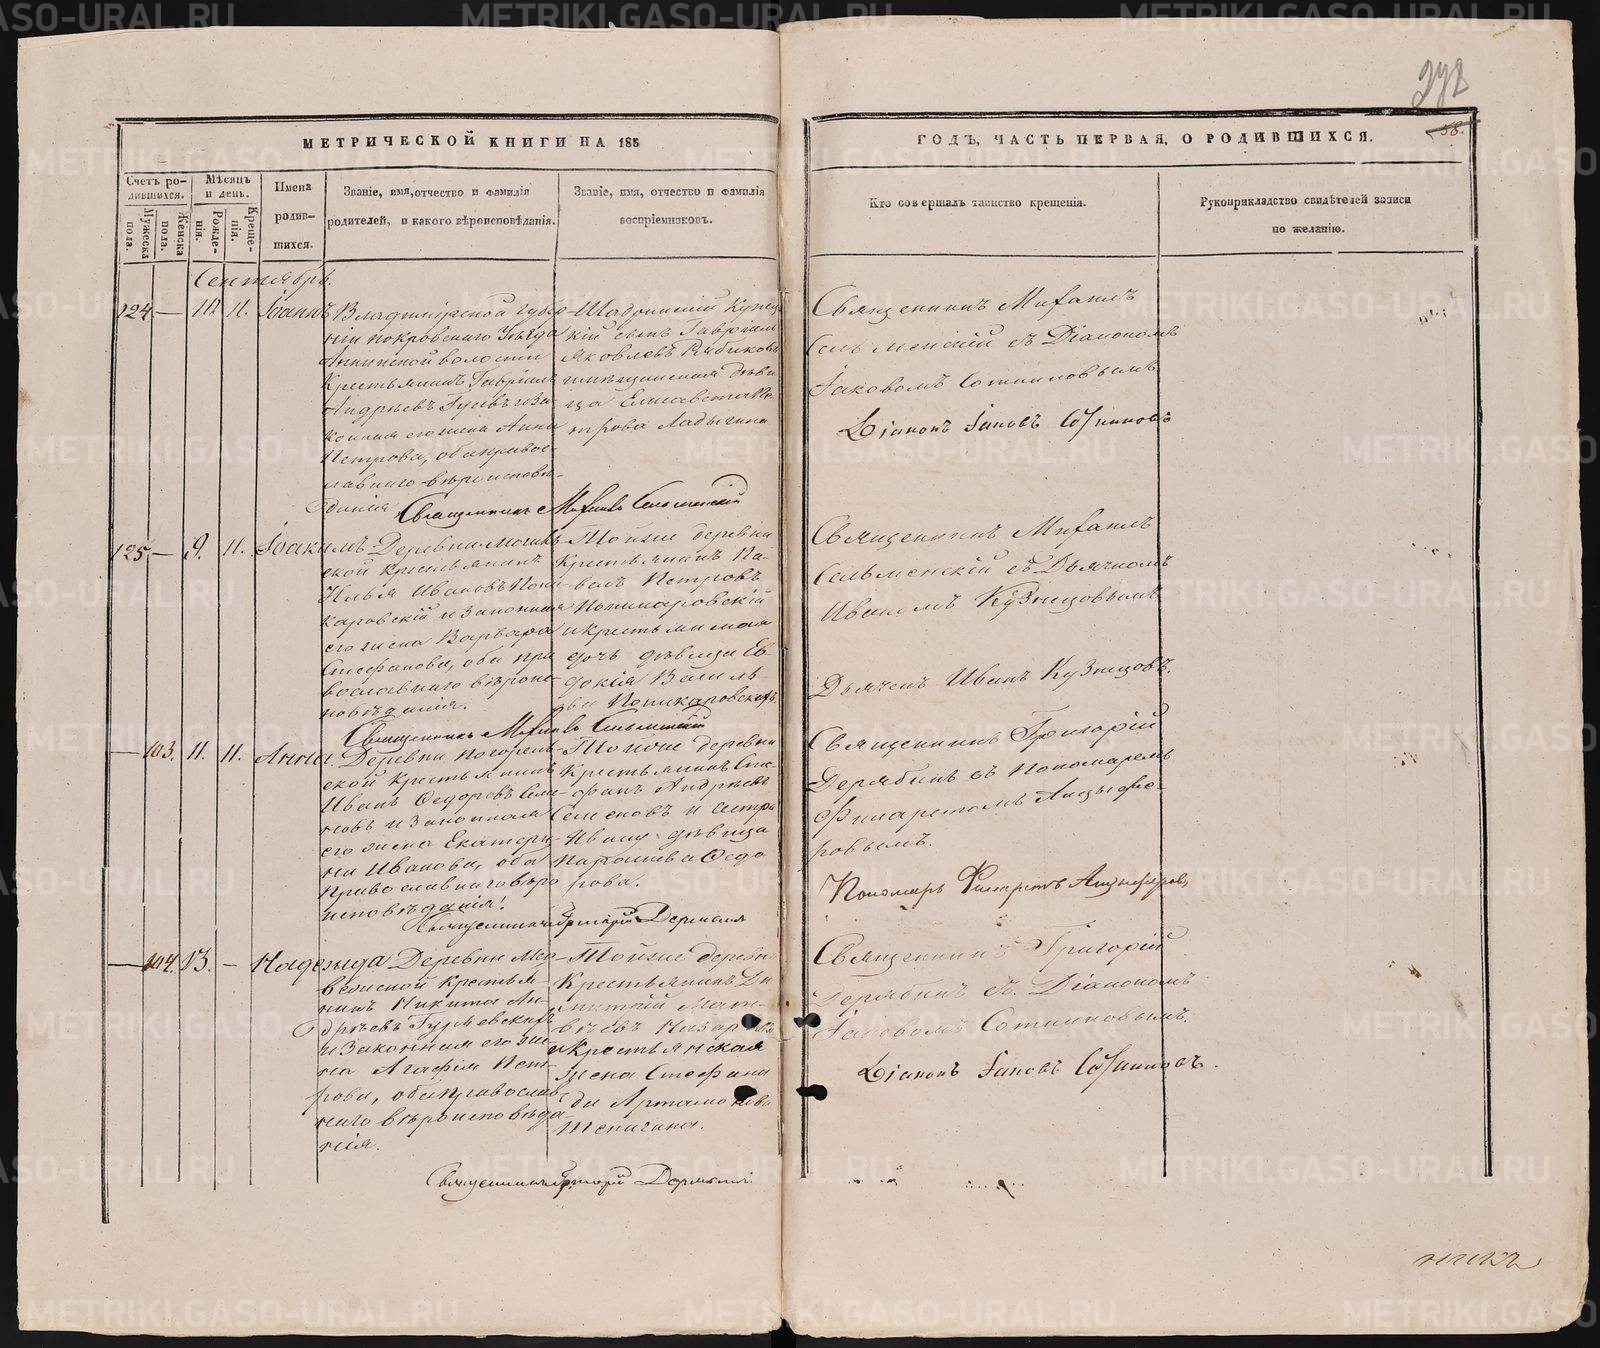 МЕТРИЧЕСКОЙ КНИГИ НА 185
ГОДЪ, ЧАСТЬ ПЕРВАЯ, О РОДИВШИХСЯ.
58.
Счетъ ро-
дившихся.
Мужеска
пола.
Женска
пола.
Мѣсяцъ
и день.
Рожде-
нія.
Креще-
нія.
Имена
родив-
шихся.
Званіе, имя, отчество и фамилія
родителей, и какого вѣроисповѣданія.
Званіе, имя, отчество и фамилія
воспріемниковъ.
Кто совершалъ таинство крещенія.
Рукоприкладство свидѣтелей записи
по желанію.
Сентябрь.
124 — 11. Іоаннъ
Владимірской Губер-
ніи Покровскаго Уѣзда
Аннинской волости
Крестьянинъ Гавріилъ
Андреевъ и за-
конная его жена Анна
Петрова, оба право-
славнаго вѣроисповѣ-
данія
Шадринскій Купе-
кій сынъ Гавріилъ
Яковлевъ и
мѣщанская дѣви-
ца Елисавета Пе-
трова Ладыгина
Священникъ Михаилъ
Сельменскій съ Діакономъ
Іаковомъ Сотниковымъ
Діаконъ Іаковъ Сотниковъ
Священникъ Михаилъ Сельменскій
125 — 9. 11. Іоакимъ
Деревни
ской крестьянинъ
Илья Ивановъ Пони-
каровскій и законная
его жена Варвара
Стефанова, оба пра-
вославнаго вѣроис-
повѣданія.
Тойже деревни
Крестьянинъ Па-
велъ Петровъ
Поникаровскій
и крестьянская
дочь дѣвица Ев-
докія Василь-
ева Поникаровская.
Священникъ Михаилъ
Сельменскій съ Дьячкомъ
Иваномъ Кузнецовымъ
Дьячекъ Иванъ Кузнецовъ.
Священникъ Михаилъ Сельменскій
— 103. 11. 11. Анна.
Деревни Погорѣль-
ской Крестьянинъ
Иванъ Федоровъ Семе-
новъ и законная
его жена Екатери-
на Иванова, оба
православнаго вѣро
исповѣданія.
Тойже деревни
Крестьянинъ Сте-
фанъ Андреевъ
Семеновъ и сестра
Ивану дѣвица
Федо-
рова.
Священникъ Григорій
Дерябинъ съ Пономаремъ
Филаретомъ Анцыфе-
ровымъ.
Пономарь Филаретъ Анцыферовъ
Священникъ Григорій Дерябинъ
— 104. 13. — Надежда
Деревни Мед-
вежской Крестья-
нинъ Никита Ан-
дреевъ Гуляевскихъ
и законная его же-
на Агафія Пет-
рова, оба православ-
наго вѣроисповѣда-
нія.
Тойже деревни
Крестьянинъ Ди-
митрій Мат-
вѣевъ
и Крестьянская
жена Стефани-
да Артамонова
Шепигина.
Священникъ Григорій
Дерябинъ съ Діакономъ
Іаковомъ Сотниковымъ.
Діаконъ Іаковъ Сотниковъ.
Священникъ Григорій Дерябинъ.
METRIKI.GASO-URAL.RU